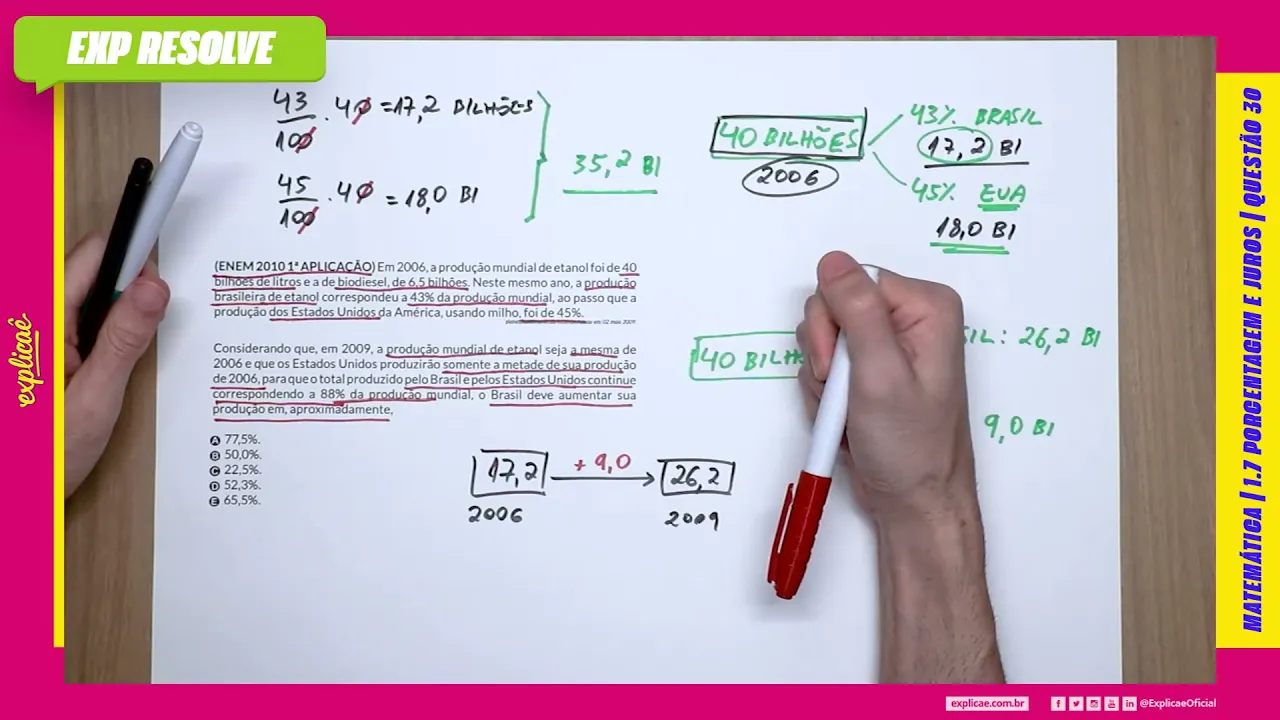 EXP RESOLVE
43/100 . 40 = 17,2 BILHÕES
45/100 . 40 = 18,0 BI
35,2 BI
40 BILHÕES
2006
43% BRASIL
17,2 BI
45% EUA
18,0 BI
(ENEM 2010 1ª APLICAÇÃO) Em 2006, a produção mundial de etanol foi de 40
bilhões de litros e a de biodiesel, de 6,5 bilhões. Neste mesmo ano, a produção
brasileira de etanol correspondeu a 43% da produção mundial, ao passo que a
produção dos Estados Unidos da América, usando milho, foi de 45%.
em 02 maio 2009
Considerando que, em 2009, a produção mundial de etanol seja a mesma de
2006 e que os Estados Unidos produzirão somente a metade de sua produção
de 2006, para que o total produzido pelo Brasil e pelos Estados Unidos continue
correspondendo a 88% da produção mundial, o Brasil deve aumentar sua
produção em, aproximadamente,
A 77,5%.
B 50,0%.
C 22,5%.
D 52,3%.
E 65,5%.
40 BILH
SIL: 26,2 BI
9,0 BI
17,2 + 9,0 26,2
2006 2009
explicaê
MATEMÁTICA | 1.7 PORCENTAGEM E JUROS | QUESTÃO 30
explicae.com.br
@ExplicaeOficial